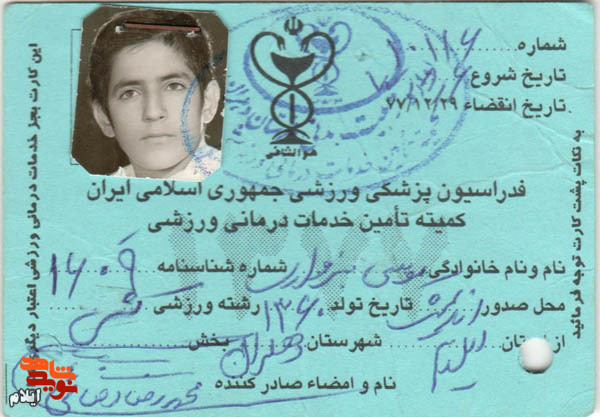 شماره ۱۰۱۱۶
تاریخ شروع
تاریخ انقضاء ۷۷/۱۲/۲۹
هوالشافی
فدراسیون پزشکی ورزشی جمهوری اسلامی ایران
کمیته تأمین خدمات درمانی ورزشی
۱۳۷۷
نام و نام خانوادگی موسی شماره شناسنامه ۱۶۰۹
محل صدور اندیمشک تاریخ تولد ۱۳۶۰ رشته ورزشی کشتی
از استان ایلام شهرستان دهلران بخش
نام و امضاء صادر کننده محمدرضا رضایی
به نکات پشت کارت توجه فرمائید
این کارت بجز خدمات درمانی ورزشی اعتبار
شاهد
نوید
ایلام